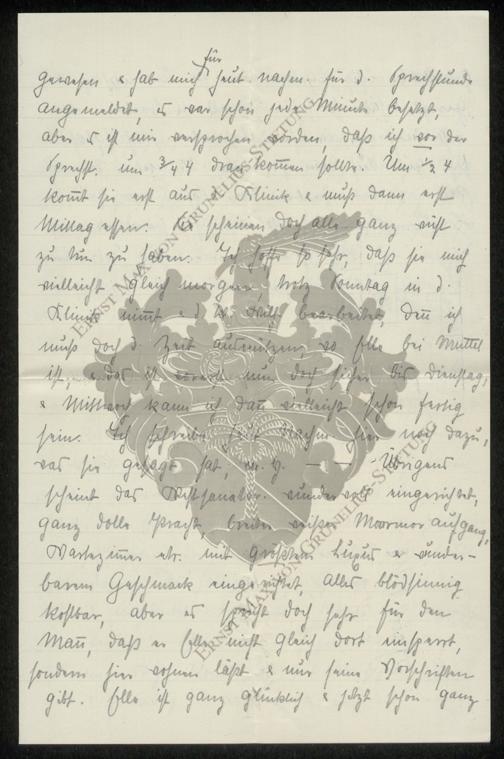 für
gewesen & hab mich heut nachm. für d. Sprechstunde
angemeldet, es war schon jede Minute besetzt,
aber es ist mir versprochen worden, daß ich vor der
Sprechst. um 3/4 4 drankommen sollte. Um 1/2 4
kommt sie erst aus d. Klinik & muß dann erst
Mittag essen. Sie scheinen doch alle ganz
zu tun zu haben. Ich hoffe so sehr, daß sie mich
vielleicht gleich morgen, trotz Sonntag in d.
Klinik nimmt & d. bearbeitet, denn ich
muß doch d. Zeit ausnützen, wo Elle bei Muttel
ist, das ist nun doch sicher bis Dienstag,
& Mittwoch kann ich dann vielleicht schon fertig
sein. Ich schreibe heut nachm. hier noch dazu,
was sie gesagt hat, — — —. Übrigens
scheint das Privatsanator. wundervoll eingerichtet,
ganz dolle Pracht, breiter weißer Marmoraufgang,
Wartezimmer etc. mit größtem Luxus & wunder-
barem Geschmack eingerichtet, alles blödsinnig
kostbar, aber es spricht doch sehr für den
Mann, daß er Elle nicht gleich dort einsperrt,
sondern hier wohnen läßt & nur seine Vorschriften
gibt. Elle ist ganz glücklich & jetzt schon ganz
ERNST MAX VON GRUNELIUS-STIFTUNG
ERNST MAX VON GRUNELIUS-STIFTUNG